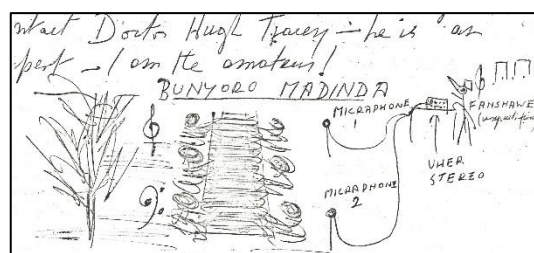 ntact Doctor Hugh Tracey - he is an
pert - I am the amateur!
BUNYORO MADINDA
MICRAPHONE
1
FANSHAWE
UHER
STEREO
MICRAPHONE
2